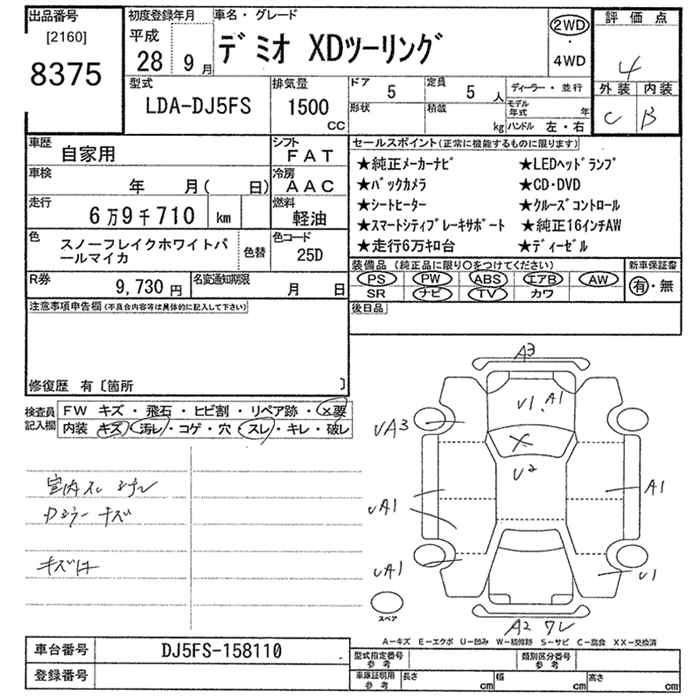 出品番号 初度登録年月 車名・グレード 2WD・4WD 評価点
[2160] 平成 28 9月 デミオ XDツーリング 4
8375
型式 LDA-DJ5FS 排気量 1500 CC ドア 5 定員 5人 ディーラー・並行 外装 内装
形状 積載 kg モデル年式 年 ハンドル 左・右 C B
車歴 自家用 シフト FAT セールスポイント(正常に機能するものに限ります)
車検 年 月( 日) 冷房 AAC ★純正メーカーナビ ★LEDヘッドランプ
★バックカメラ ★CD・DVD
走行 6万9千710 km 燃料 軽油 ★シートヒーター ★クルーズコントロール
★スマートシティブレーキサポート ★純正16インチAW
色 スノーフレイクホワイトパールマイカ 色替 色コード 25D ★走行6万キロ台 ★ディーゼル
R券 9,730円 名変通知期限 月 日 装備品(純正品に限り○をつけてください) 新車保証書
PS PW ABS エアB AW 有・無
SR ナビ TV カワ
注意事項申告欄(不具合内容等は具体的に記入して下さい) 後日品
修復歴 有〔箇所 〕
検査員記入欄 FW キズ・飛石・ヒビ割・リペア跡・×要
内装 キズ・汚レ・コゲ・穴・スレ・キレ・破レ
A3
U1 A1
UA3
×
U2
室内スレ
A1
キズ
UA1
UA1 U1
スペア
A2 ワレ
A-キズ E-エクボ U-凹み W-補修跡 S-サビ C-腐食 XX-交換済
車台番号 DJ5FS-158110 型式指定番号 参考 類別区分番号 参考
登録番号 車庫証明用 参考 長さ cm 幅 cm 高さ cm